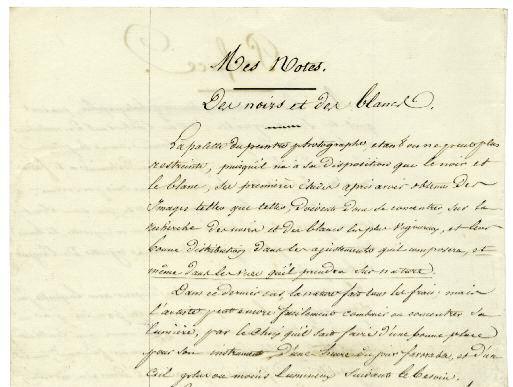 Mes Notes.
Des noirs et des blancs.
La palette du peintre photographe, etant on ne peut plus
restreinte, puisqu'il n'a à sa disposition que le noir et
le blanc, ses premières études après avoir obtenu des
Images telles que telles, doivent donc se concentrer sur la
recherche des noirs et des blancs les plus vigoureux, et leur
bonne distribution dans les ajustements qu'il composera, et
même dans les vues qu'il prendra sur nature.
Dans ce dernier cas la nature fait tous les frais, mais
l'artiste peut encore facilement combiner ou concentrer sa
lumière, par le choix qu'il sait faire d'une bonne place
pour son instrument, d'une heure du jour favorable, et d'un
ciel plus ou moins lumineux suivant le terrain.